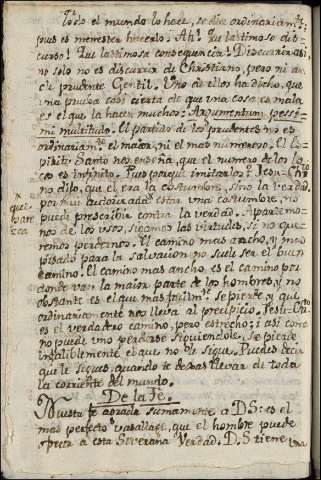 Todo el mundo lo hace, se dice ordinariam.te,
pues es menester hacerlo. Ah! Que lastimoso dis-
curso! Que lastimosa consequencia! Discurrir asi,
no solo no es discurrir de Christiano, pero ni aun
de prudente Gentil. Uno de ellos ha dicho, que
una prueba casi cierta de que una cosa es mala,
es el que la hacen muchos: Argumentum pessi-
mi multitudo. El partido de los prudentes no es
ordinariam.te el maior, ni el mas numeroso. El Es-
piritu Santo nos enseña, que el numero de los lo-
cos es infinito. Pues porquè imitarlos? Jesu-Christo
no dijo, que el era la costumbre, sino la verdad.
por mui autorizada x estar una costumbre, no
x que
parez
ca
puede prescribir contra la verdad. Apartemo-
nos de los usos, sigamos las virtudes, si no que-
remos perdernos. El camino mas ancho, y mas
pisado para la salvacion no suele ser el buen
camino. El camino mas ancho es el camino por
donde van la maior parte de los hombres, y no
obstante es el que mas facilm.te se pierde, y que
ordinariamente nos lleva al precipicio. Jesu-Xto.
es el verdadero camino, pero estrecho; i asi como
no puede uno perderse siguiendole, se pierde
infaliblemente el que no le sigue. Puedes decir
que le sigues, quando te dexas llevar de toda
la corriente del mundo.
De la Fe.
Nuestra fe agrada sumamente a D.S: es el
mas perfecto vasallage, que el hombre puede
a esta Soverana Verdad. D.S tiene una